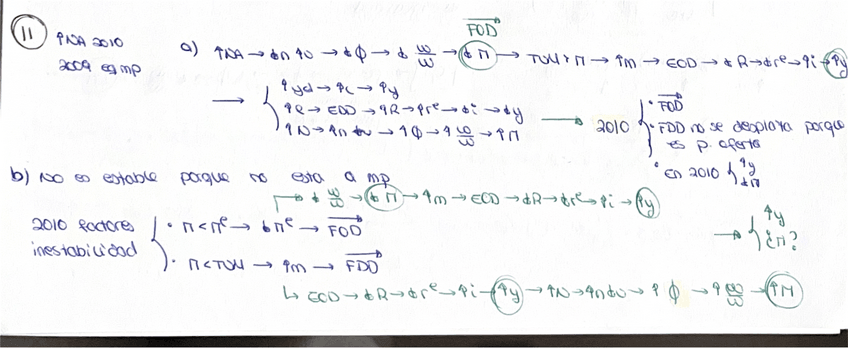 FOD
11 ↑NA 2010 a) ↑NA → ↓n ↑u → ↓Φ → ↓ẇ/w → ↓Π → TΠN > Π → ↑m → EOD → ↓R → ↓rᵉ → ↑i → ↑y
2009 eq mp
→ { ↑yd → ↑c → ↑y
↑R → EDD → ↑R → ↑rᵉ → ↓i → ↓y
↑N → ↑n ↓u → ↑Φ → ↑ẇ/w → ↑Π → 2010 { · FOD
· FDD no se desplaza porque es p. oferta
· En 2010 { ↑y ↓Π
b) NO es estable porque no esta a mp
↓ẇ/w → ↓Π → ↑m → EOD → ↓R → ↓rᵉ → ↑i → ↑y
2010 factores inestabilidad { · Π < Πᵉ → ↓Πᵉ → FOD
· Π < TΠN → ↑m → FDD
→ { ↑y ¿Π?
↳ EOD → ↓R → ↓rᵉ → ↑i → ↑y → ↑N → ↑n ↓u → ↑Φ → ↑ẇ/w → ↑Π